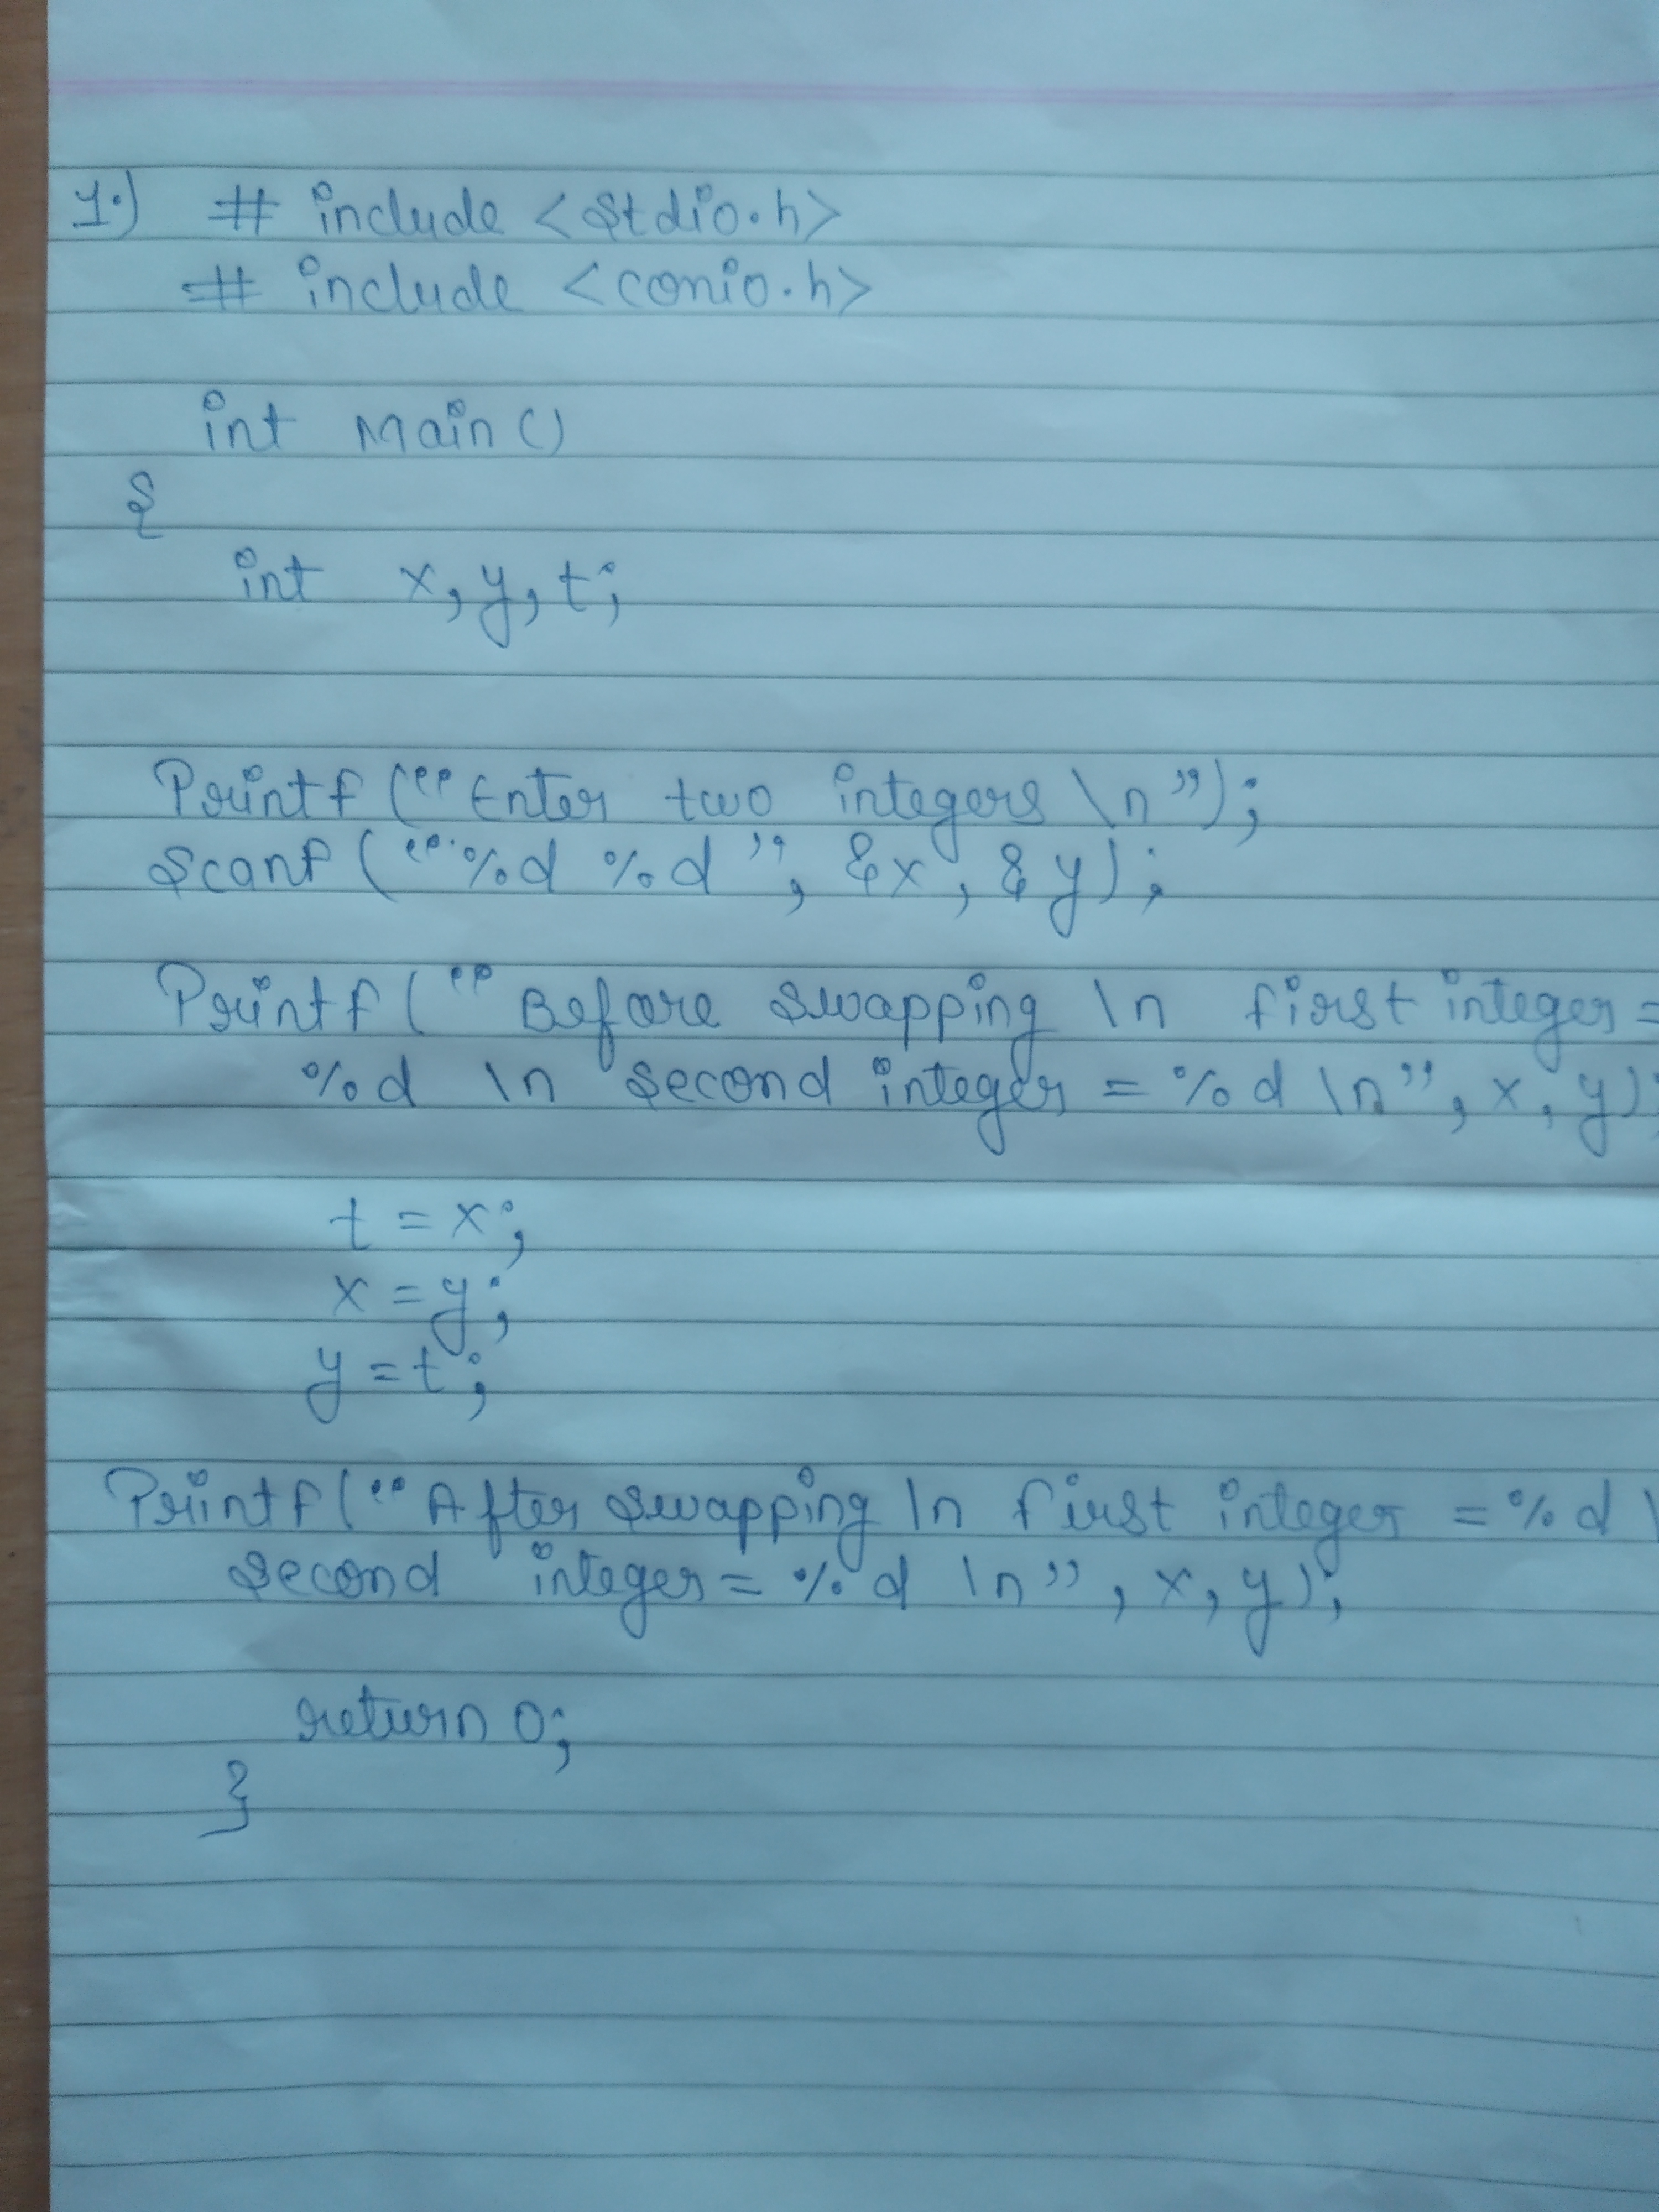 1.) # include <stdio.h>
# include <conio.h>
int main()
{
int x, y, t;
Printf (“Enter two integers \n”);
Scanf (“%d %d”, &x, &y);
Printf (“Before swapping \n first integer =
%d \n second integer = %d \n”, x, y);
t = x;
x = y;
y = t;
Printf (“After swapping \n first integer = %d \
second integer = %d \n”, x, y);
return 0;
}